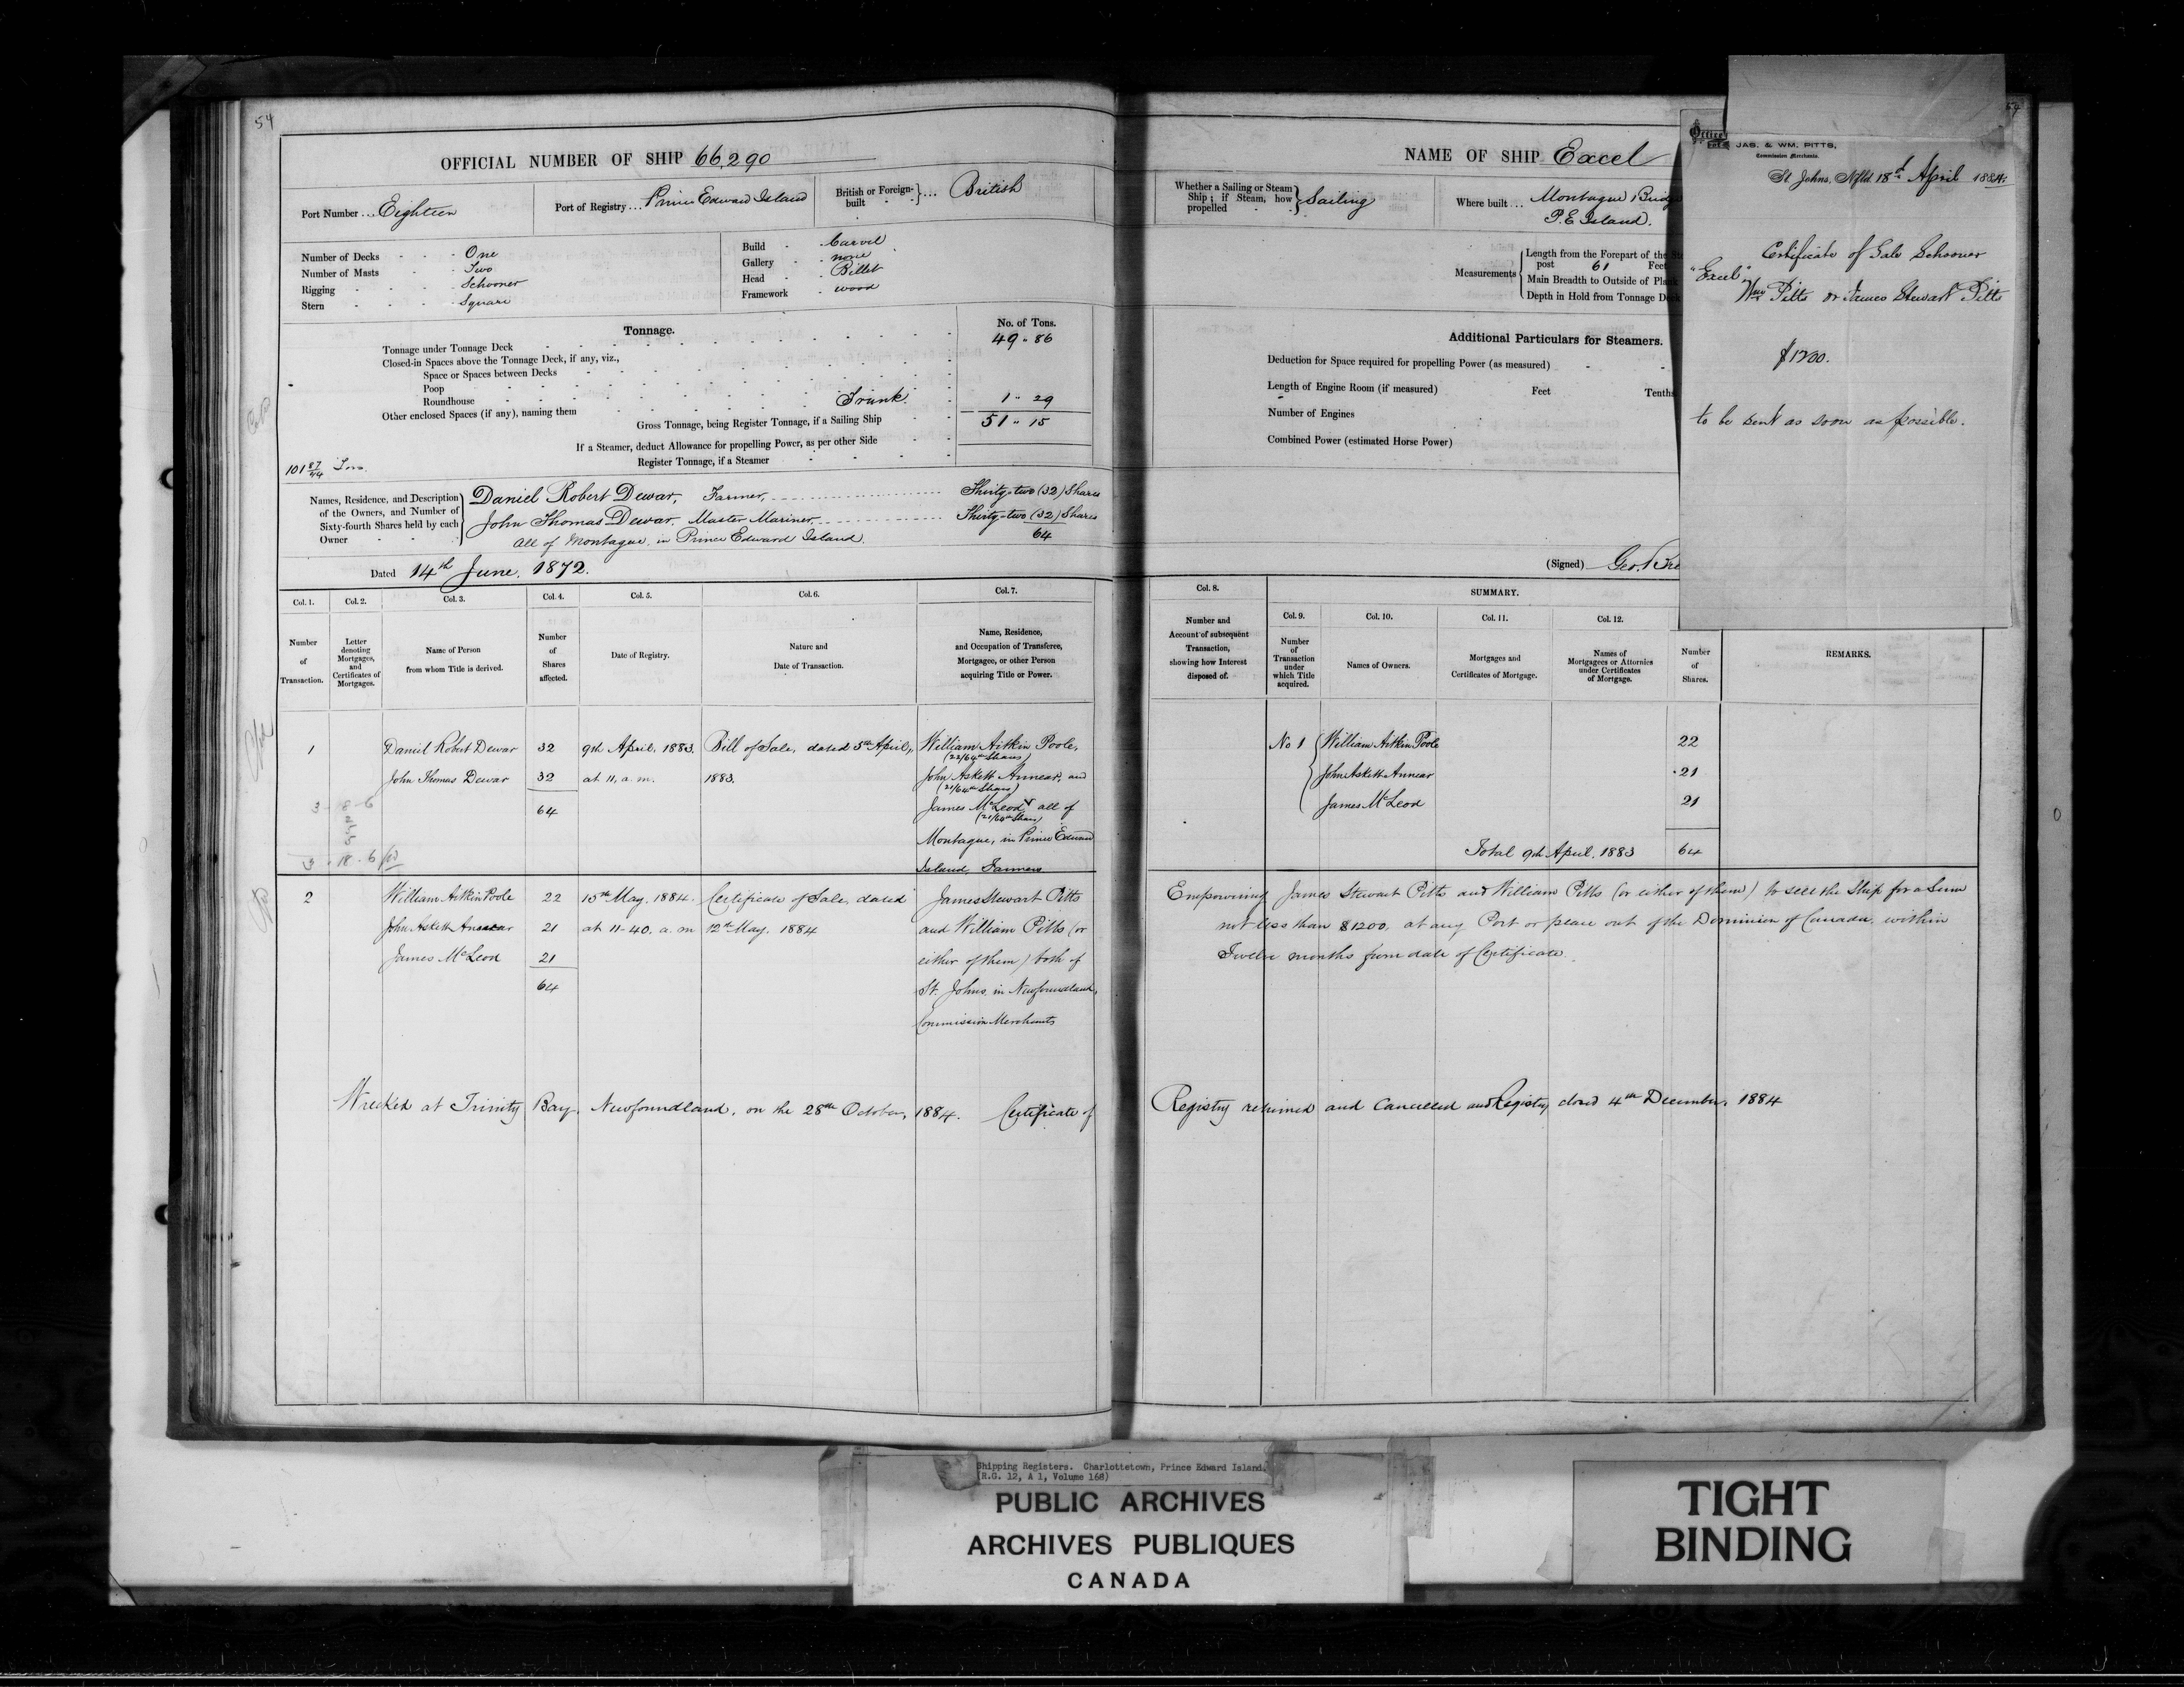 54
OFFICIAL NUMBER OF SHIP 66,290
Port Number ... Eighteen
Port of Registry ... Prince Edward Island
British or Foreign-built ... British
Number of Decks One
Number of Masts Two
Rigging Schooner
Stern Square
Build Carvel
Gallery none
Head Billet
Framework wood
Tonnage.
No. of Tons.
Tonnage under Tonnage Deck 49 " 86
Closed-in Spaces above the Tonnage Deck, if any, viz.,
Space or Spaces between Decks
Poop
Roundhouse
Other enclosed Spaces (if any), naming them Trunk 1 " 29
Gross Tonnage, being Register Tonnage, if a Sailing Ship 51 " 15
If a Steamer, deduct Allowance for propelling Power, as per other Side
Register Tonnage, if a Steamer
101 87/94 Tons
Names, Residence, and Description
of the Owners, and Number of
Sixty-fourth Shares held by each
Owner
Daniel Robert Dewar, Farmer, Thirty-two (32) Shares
John Thomas Dewar, Master Mariner, Thirty-two (32) Shares
all of Montague, in Prince Edward Island. 64
Dated 14th June, 1872.
Col. 1. Col. 2. Col. 3. Col. 4. Col. 5. Col. 6. Col. 7.
Number of Transaction.
Letter denoting Mortgages, and Certificates of Mortgages.
Name of Person from whom Title is derived.
Number of Shares affected.
Date of Registry.
Nature and Date of Transaction.
Name, Residence, and Occupation of Transferee, Mortgagee, or other Person acquiring Title or Power.
1 Daniel Robert Dewar 32 9th April, 1883. Bill of Sale, dated 5th April, William Aitkin Poole,
(22/64th Shares)
John Thomas Dewar 32 at 11, a.m. 1883. John Askett Annear, and
(21/64th Shares)
64 James McLeod all of
(21/64th Shares)
Montague, in Prince Edward
Island, Farmers
3 - 8 - 6
3 - 18 - 6
2 William Aitkin Poole 22 15th May, 1884. Certificate of Sale, dated James Stewart Pitts
John Askett Annear 21 at 11-40. a.m 12th May. 1884 and William Pitts (or
James McLeod 21 either of them) both of
64 St. Johns, in Newfoundland,
Commission Merchants
Wrecked at Trinity Bay, Newfoundland, on the 28th October, 1884. Certificate of
NAME OF SHIP Excel
Whether a Sailing or Steam Ship; if Steam, how propelled Sailing
Where built ... Montague Bridge
P. E. Island.
Measurements
Length from the Forepart of the
post 61 Feet
Main Breadth to Outside of
Depth in Hold from Tonnage
Additional Particulars for Steamers.
Deduction for Space required for propelling Power (as measured)
Length of Engine Room (if measured) Feet Tenths
Number of Engines
Combined Power (estimated Horse Power)
(Signed) Geo.
Col. 8.
SUMMARY.
Col. 9. Col. 10. Col. 11. Col. 12.
Number and Account of subsequent Transaction, showing how Interest disposed of.
Number of Transaction under which Title acquired.
Names of Owners.
Mortgages and Certificates of Mortgage.
Names of Mortgagees or Attornies under Certificates of Mortgage.
Number of Shares.
REMARKS.
No 1 William Aitkin Poole 22
John Askett Annear 21
James McLeod 21
Total 9th April, 1883 64
Empowering James Stewart Pitts and William Pitts (or either of them) to sell the Ship for a Sum
not less than $1200, at any Port or place out of the Dominion of Canada, within
Twelve months from date of Certificate.
Registry returned and Cancelled and Registry closed 4th December, 1884
Office
JAS. & WM. PITTS,
Commission Merchants.
St. Johns, Nfld. 18d April 1884.
Certificate of Sale Schooner
"Excel"
Wm Pitts or James Stewart Pitts
$1200.
to be sent as soon as possible.
Shipping Registers. Charlottetown, Prince Edward Island.
(R.G. 12, A 1, Volume 168)
PUBLIC ARCHIVES
ARCHIVES PUBLIQUES
CANADA
TIGHT
BINDING